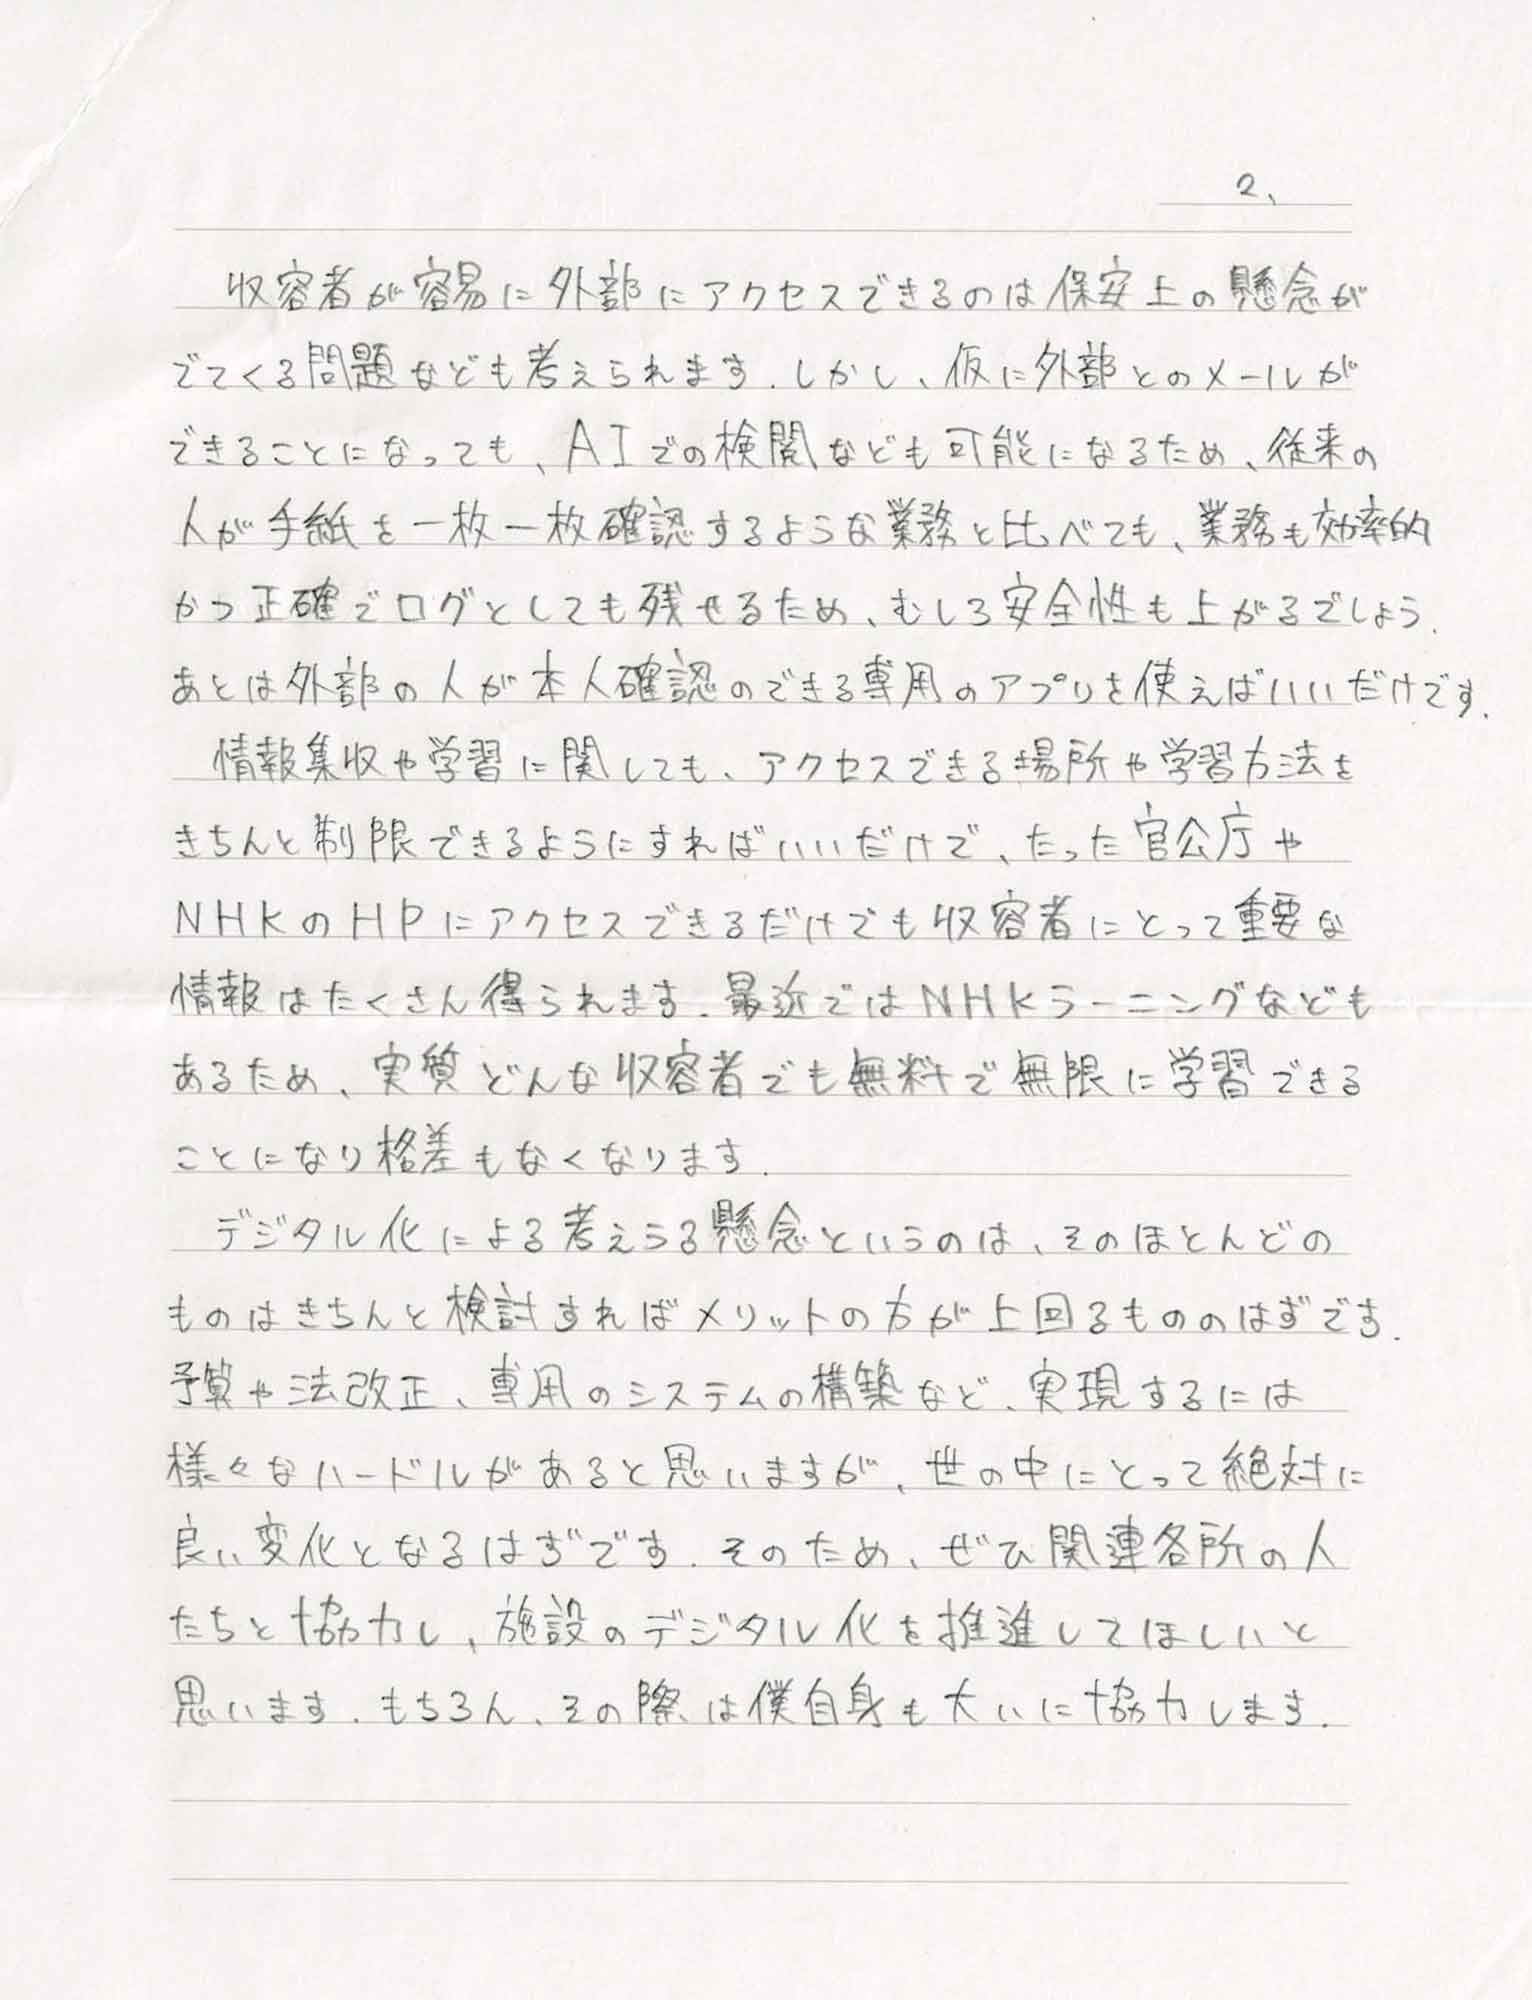 2、
収容者が容易に外部にアクセスできるのは保安上の懸念が
でてくる問題なども考えられます. しかし、仮に外部とのメールが
できることになっても、AIでの検閲なども可能になるため、従来の
人が手紙を一枚一枚確認するような業務と比べても、業務も効率的
かつ正確でログとしても残せるため、むしろ安全性も上がるでしょう.
あとは外部の人が本人確認のできる専用のアプリを使えばいいだけです.
情報集収や学習に関しても、アクセスできる場所や学習方法を
きちんと制限できるようにすればいいだけで、たった官公庁や
NHKのHPにアクセスできるだけでも収容者にとって重要な
情報はたくさん得られます. 最近ではNHKラーニングなども
あるため、実質どんな収容者でも無料で無限に学習できる
ことになり格差もなくなります.
デジタル化による考えうる懸念というのは、そのほとんどの
ものはきちんと検討すればメリットの方が上回るもののはずです.
予算や法改正、専用のシステムの構築など、実現するには
様々なハードルがあると思いますが、世の中にとって絶対に
良い変化となるはずです. そのため、ぜひ関連各所の人
たちと協力し、施設のデジタル化を推進してほしいと
思います. もちろん、その際は僕自身も大いに協力します.